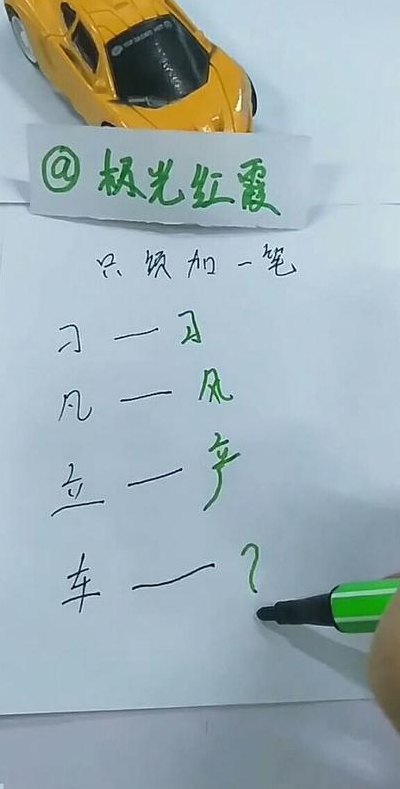 @极光红霞
只须加一笔
刁 — 习
凡 — 风
立 — 产
车 — ?